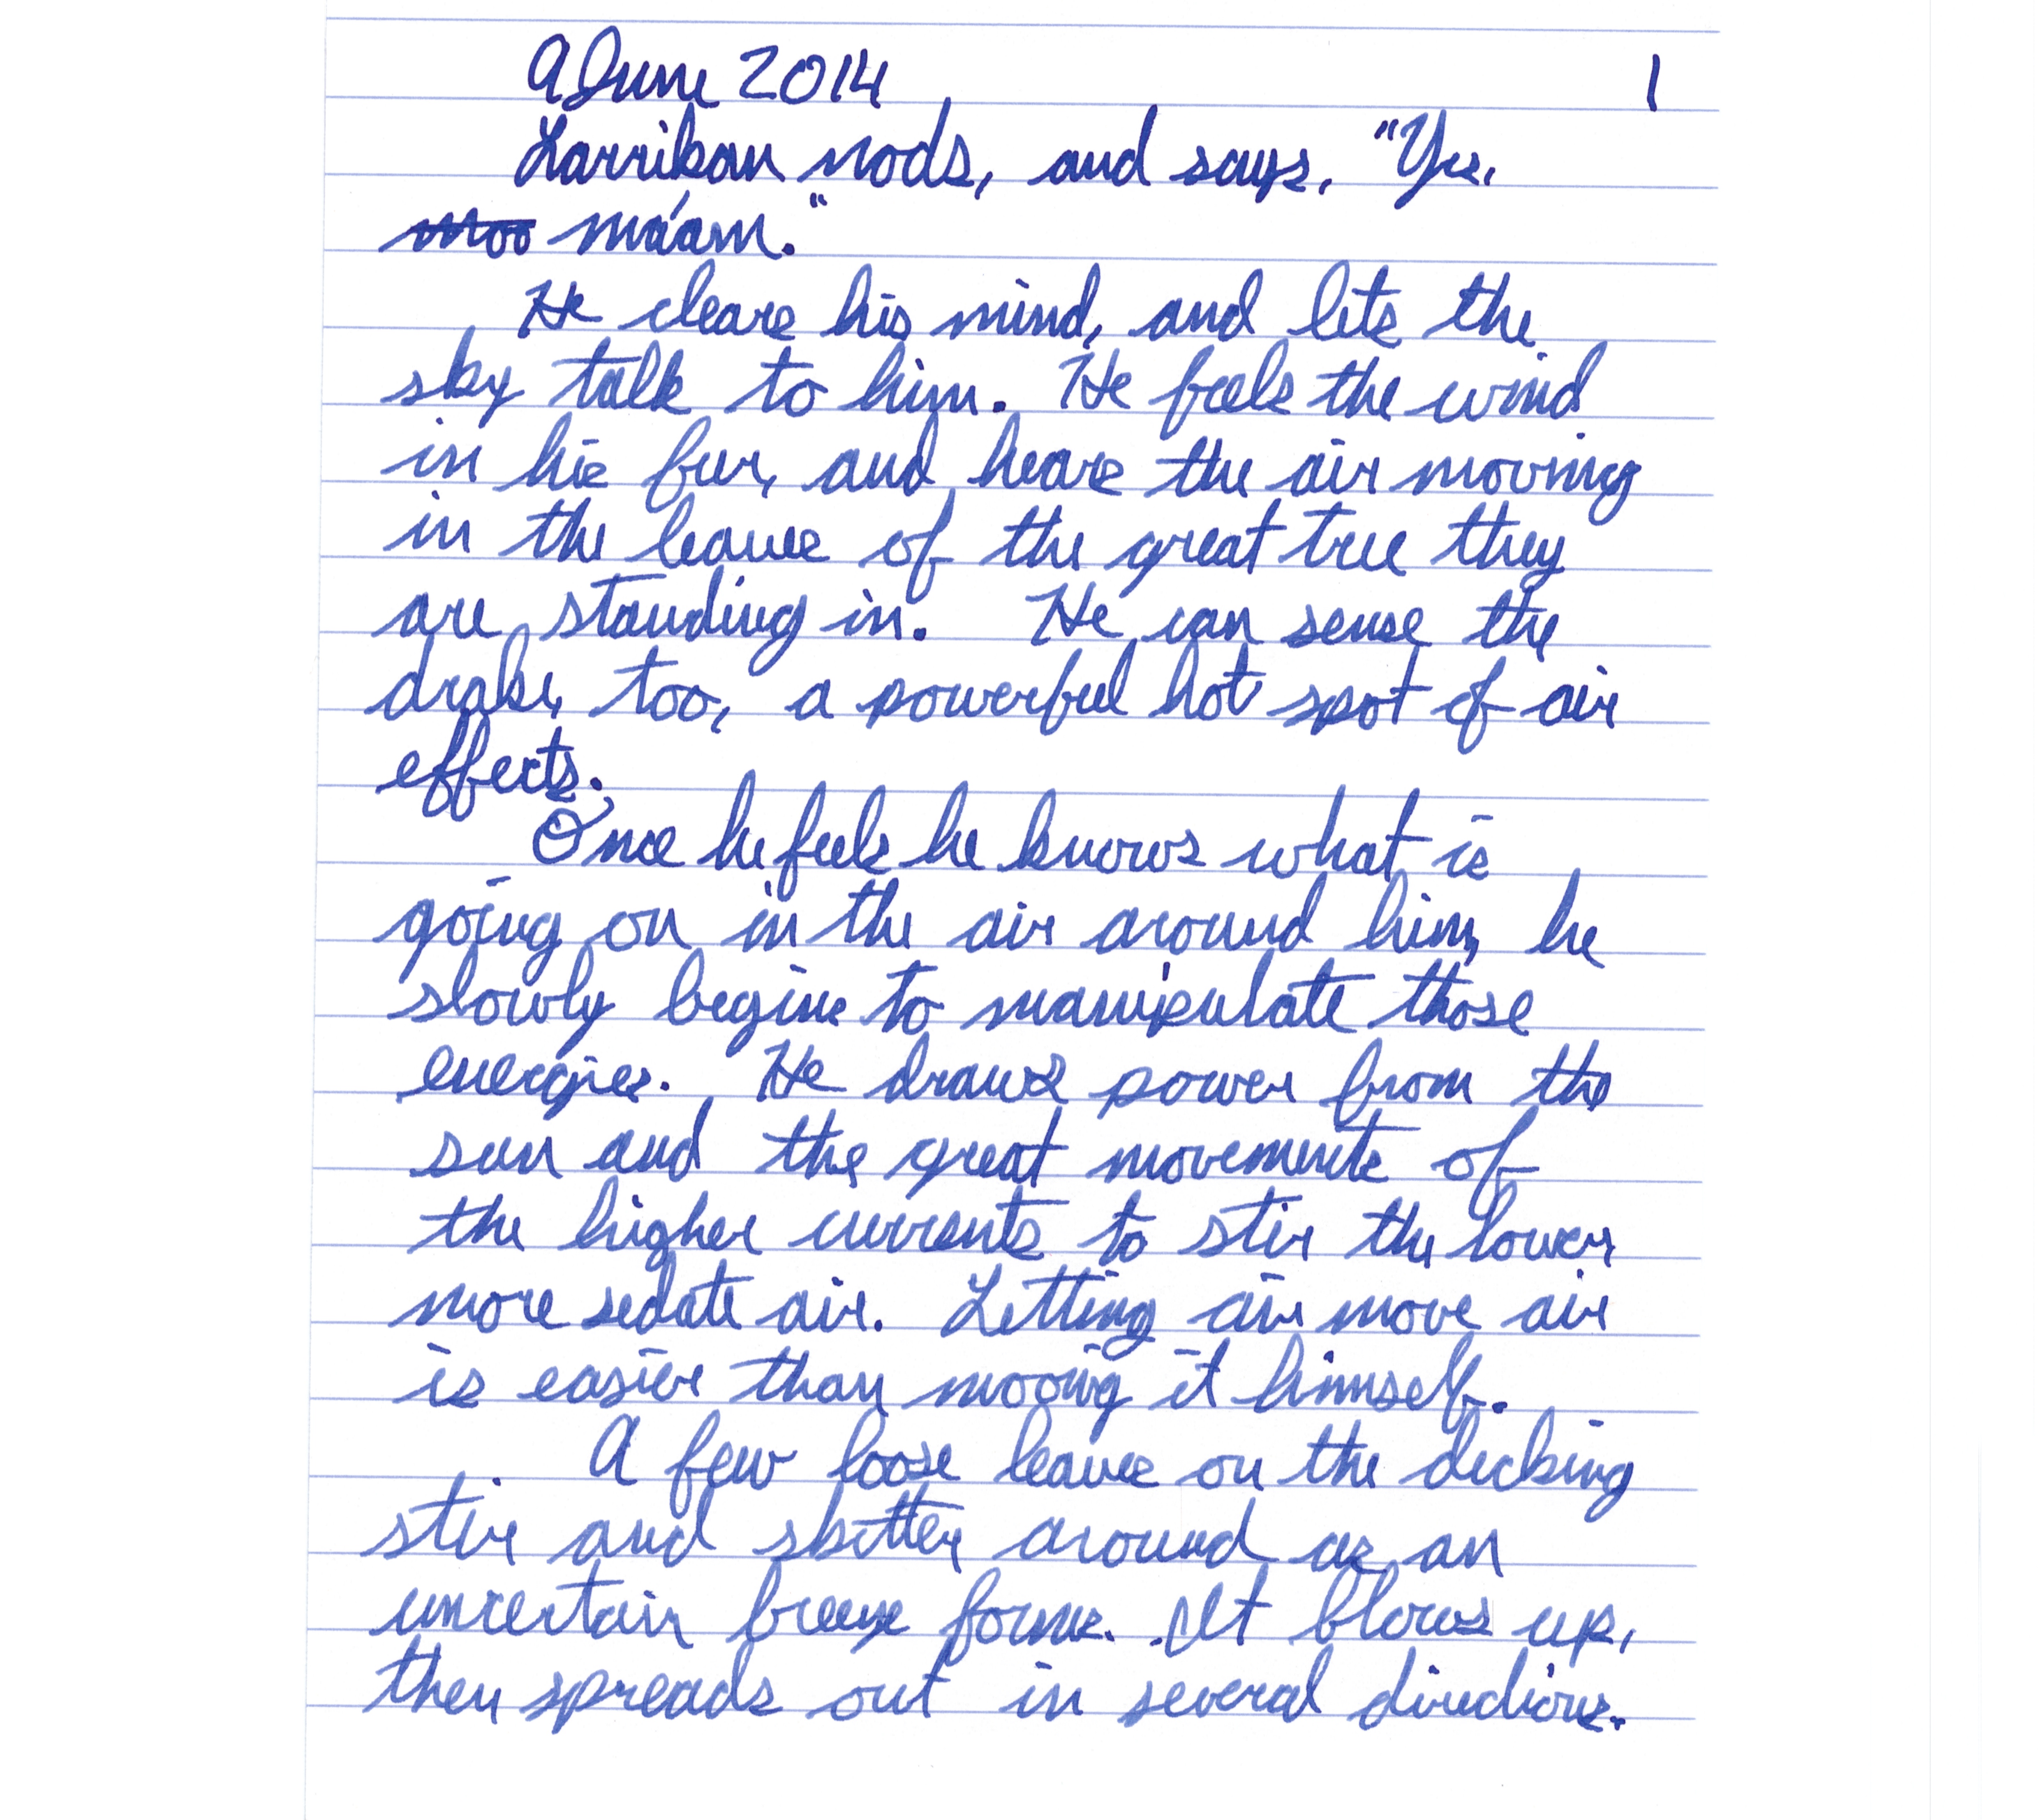 9 June 2014 1
Larrikan nods, and says, "Yes,
moo ma'am."
He clears his mind, and lets the
sky talk to him. He feels the wind
in his fur, and hears the air moving
in the leaves of the great tree they
are standing in. He can sense the
drake, too, a powerful hot spot of air
effects.
Once he feels he knows what is
going on in the air around him, he
slowly begins to manipulate those
energies. He draws power from the
sun and the great movements of
the higher currents to stir the lower,
more sedate air. Letting air move air
is easier than moving it himself.
A few loose leaves on the decking
stir and skitter around as an
uncertain breeze forms. It blows up,
then spreads out in several directions.